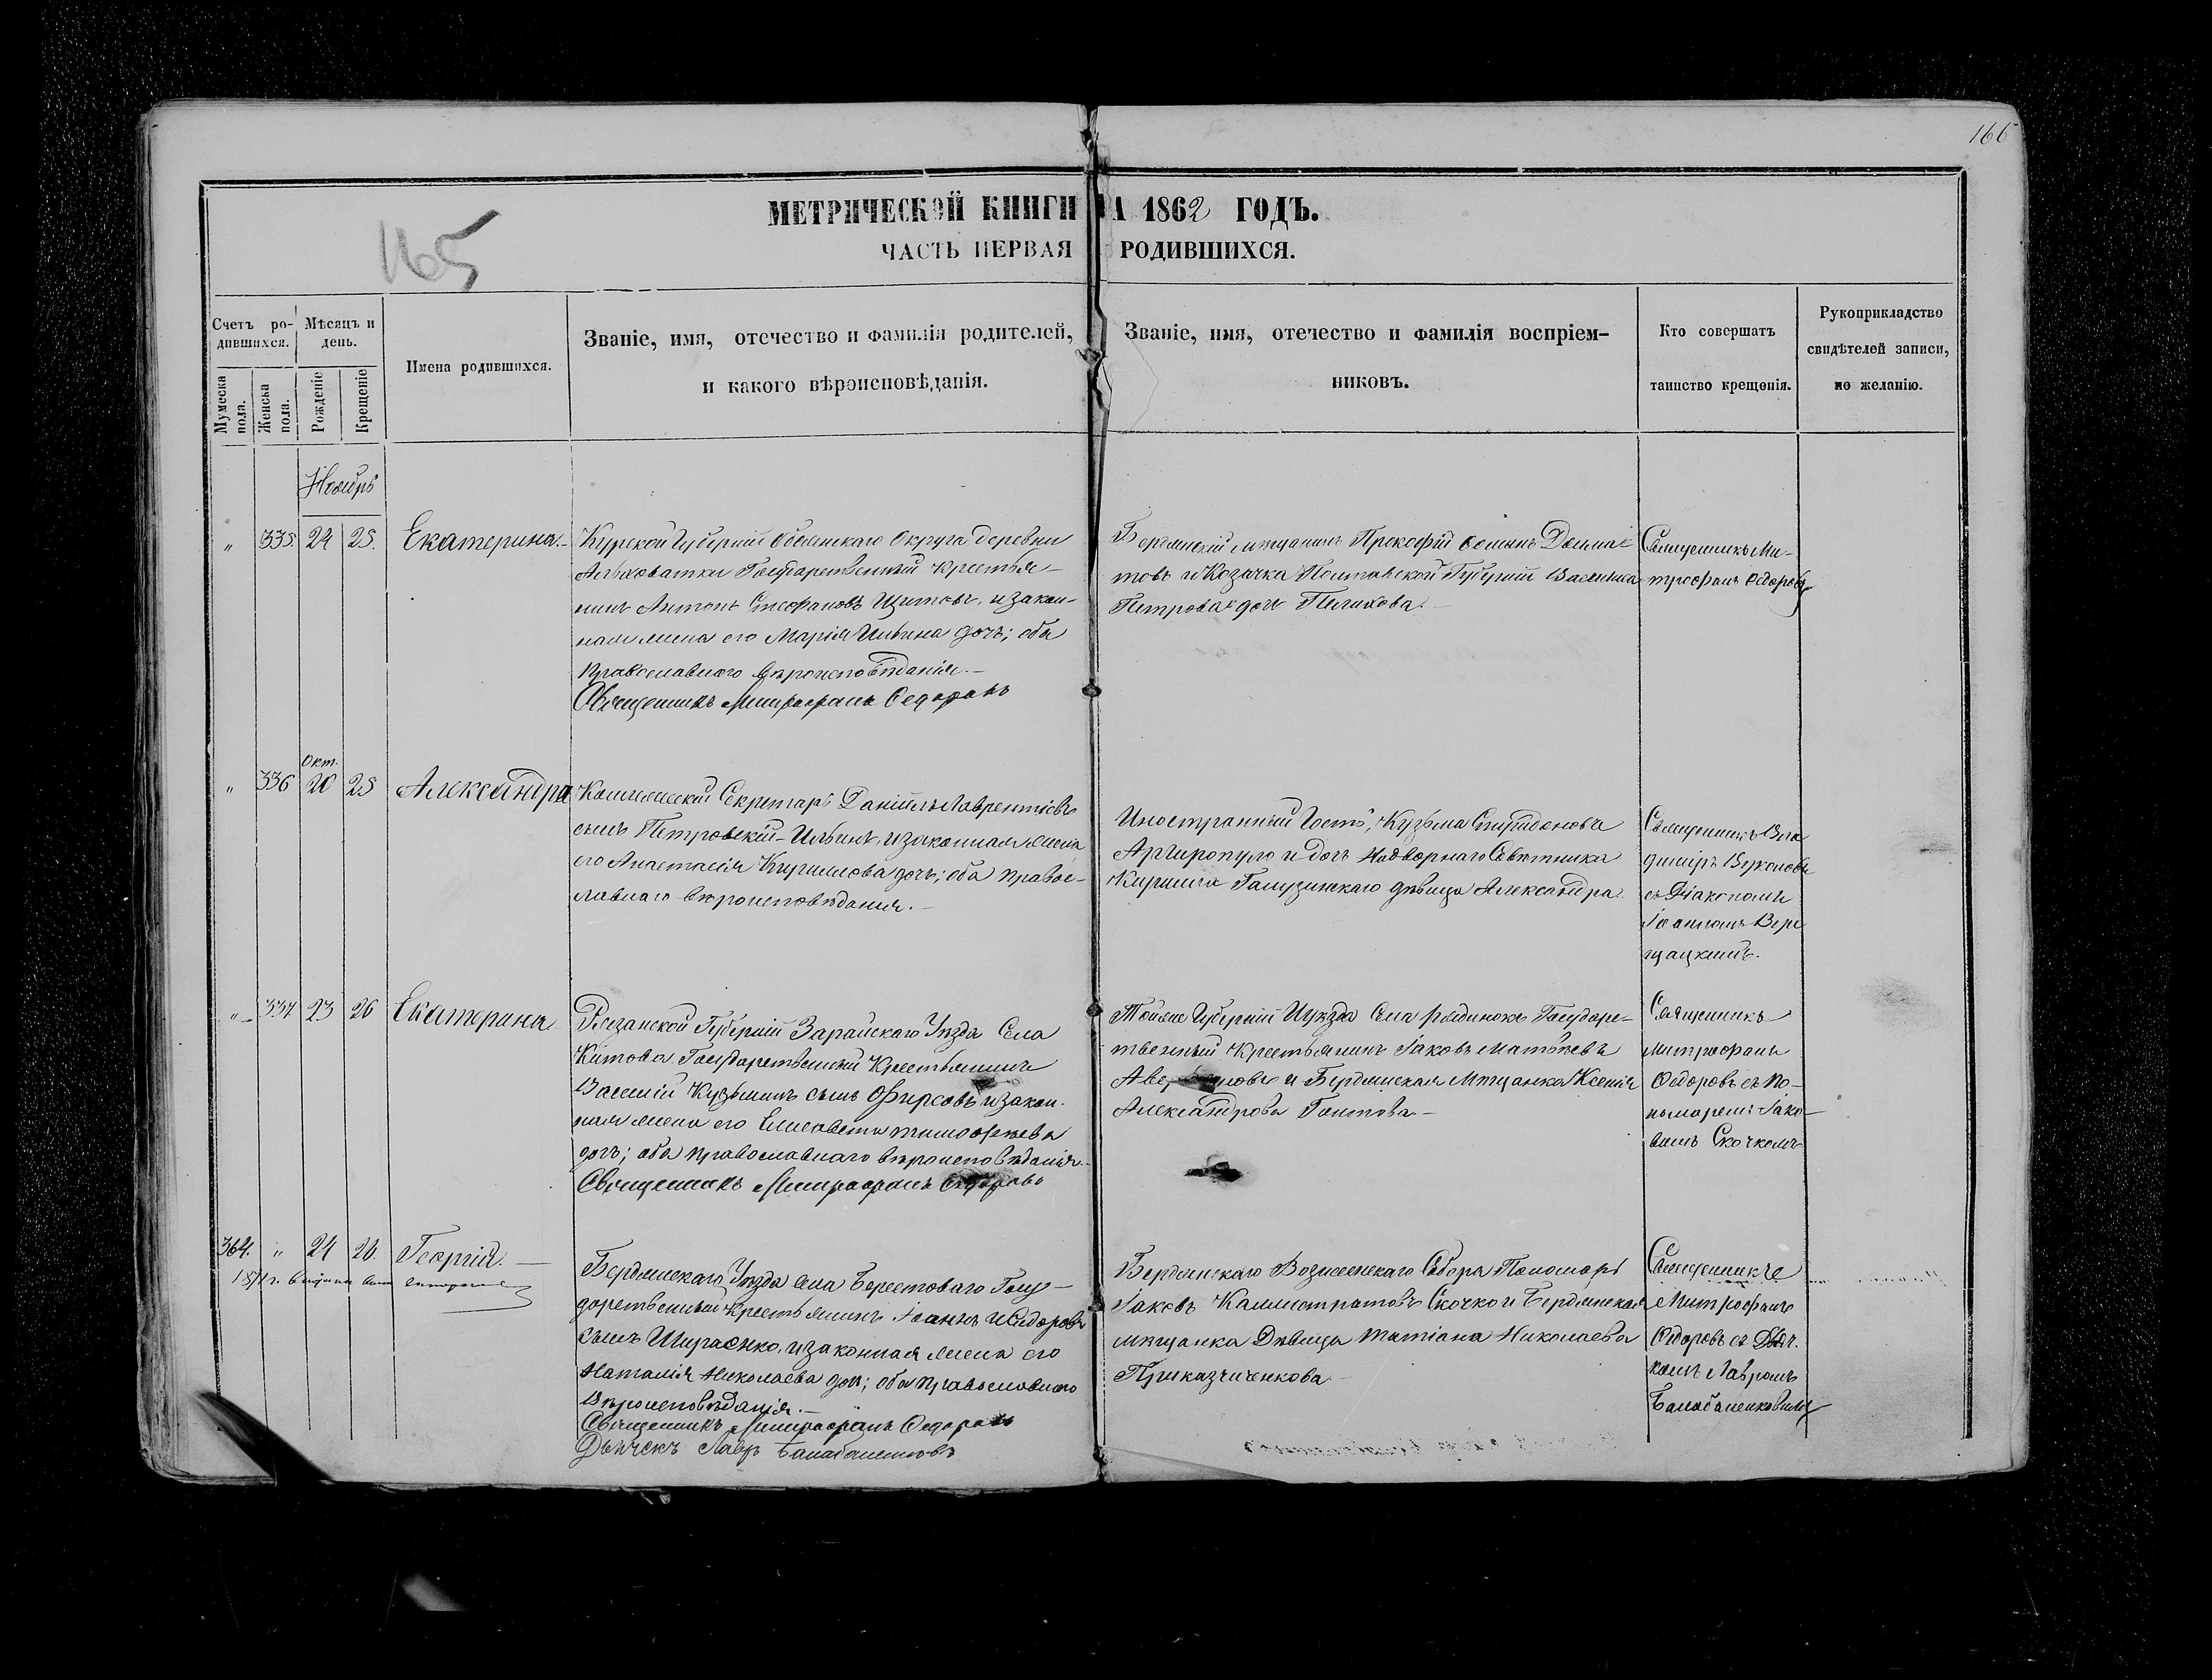 166
165
МЕТРИЧЕСКОЙ КНИГИ НА 1862 ГОДЪ.
ЧАСТЬ ПЕРВАЯ РОДИВШИХСЯ.
Счетъ ро-
дившихся.
Мужеска
пола.
Женска
пола.
Мѣсяцъ и
день.
Рожденіе
Крещеніе
Имена родившихся.
Званіе, имя, отечество и фамилія родителей,
и какого вѣроисповѣданія.
Званіе, имя, отечество и фамилія воспріем-
никовъ.
Кто совершатъ
таинство крещенія.
Рукоприкладство
свидѣтелей записи,
по желанію.
Ноябрь
" 335. 24 25. Екатерина.
Курской Губерніи Обоянскаго Округа деревни
Альховатки Государственный крестья-
нинъ Антонъ Стефановъ Щитовъ, и закон-
ная жена его Марія Ильина дочь; оба
православнаго вѣроисповѣданія.—
Священникъ Митрофанъ Федоровъ
Бердянскій мѣщанинъ Прокофій Фоминъ Долма-
товъ и Козачка Полтавской Губерніи Василиса
Петрова дочь Пелихова.
Священникъ Ми-
трофанъ Федоровъ
" 336 Окт. 20 25 Александра
Коллежскій Секретарь Даніилъ Лаврентіевъ
сынъ Петровскій-Ильинъ, и законная жена
его Анастасія Кириллова дочь; оба правос-
лавнаго вѣроисповѣданія.—
Иностранный Гость, Кузьма Спиридоновъ
Аргиропуло и дочь Надворнаго Совѣтника
Кирилла Галузинскаго дѣвица Александра
Священникъ Вла
диміръ
съ Діакономъ
Іоанномъ Вере
щацкимъ.
" 337 23 26 Екатерина
Рязанской Губерніи Зарайскаго Уѣзда Села
Китова Государственный Крестьянинъ
Василій Кузьминъ сынъ Фирсовъ, и закон-
ная жена его Елисавета Тимофѣева
дочь; оба православнаго вѣроисповѣданія.—
Священникъ Митрофанъ Федоровъ
Тойже Губерніи И уѣзда Села Рядинокъ Государс-
твенный Крестьянинъ Іаковъ Матѳѣевъ
и Бердянская Мѣщанка Ксенія
Александрова
Священникъ
Митрофанъ
Федоровъ съ По-
номаремъ Іако-
вымъ Скочкомъ
364. " 24 26. Георгій.—
Бердянскаго Уѣзда села Берестоваго Госу-
дарственный крестьянинъ Іоаннъ Исидоровъ
сынъ Ширяенко, и законная жена его
Наталія Николаева дочь; оба православнаго
Вѣроисповѣданія.—
Священникъ Митрофанъ Федоровъ
Дьячекъ Лавръ Балабаненковъ
Бердянскаго Вознесенскаго Собора Пономарь
Іаковъ Каллистратовъ Скочко и Бердянская
мѣщанка Дѣвица Татіана Николаева
Приказчиченкова
Священникъ
Митрофанъ
Федоровъ съ Дьяч-
комъ Лавромъ
Балабаненковымъ